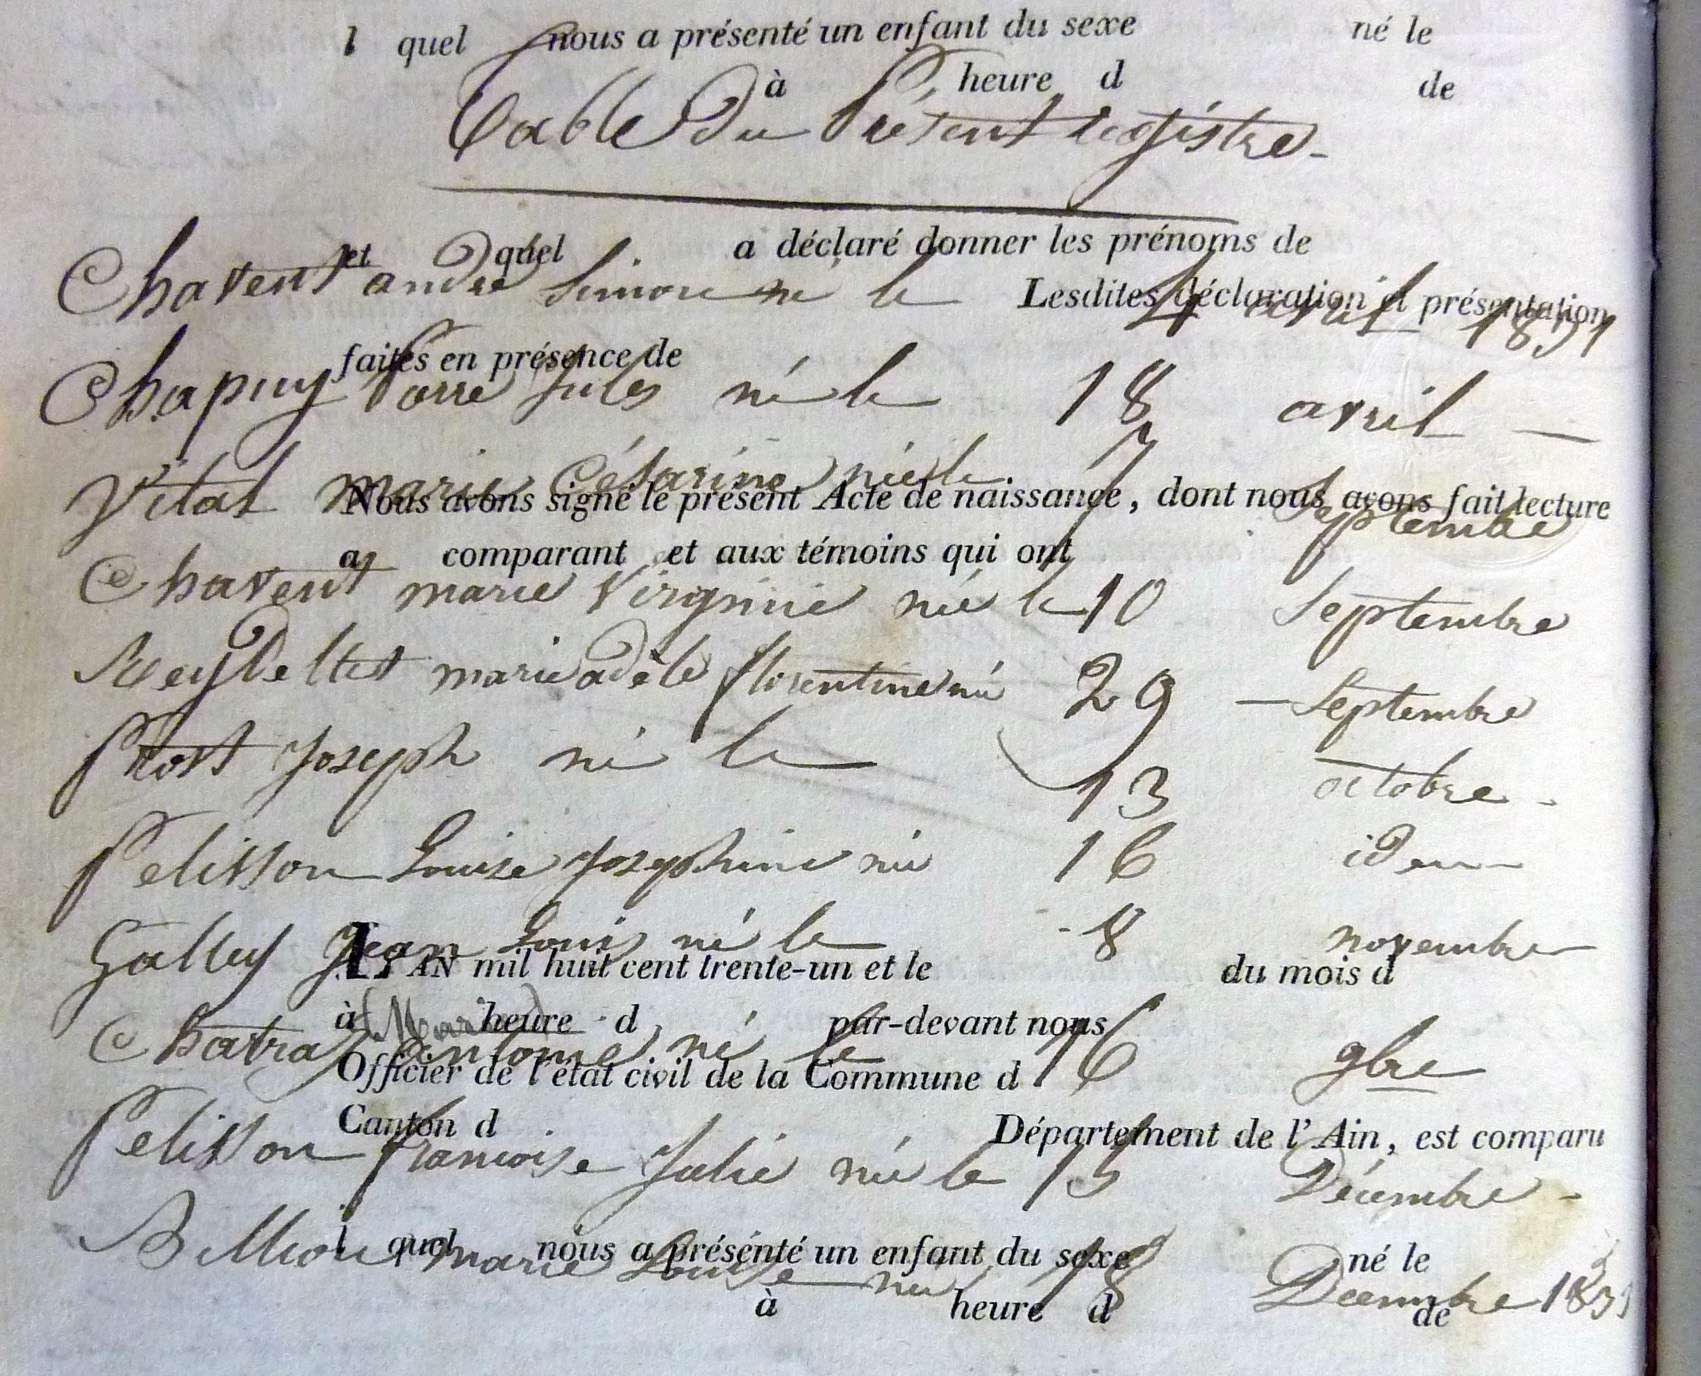 l quel nous a présenté un enfant du sexe né le
à heure d de
Table du Présent registre
et quel a déclaré donner les prénoms de
Chavent andré Simon né le 4 avril 1831
Lesdites déclaration et présentation
faites en présence de
Chapuy Pierre Jules né le 18 avril
Vital marie Césarine née le 7 Septembre
Nous avons signé le présent Acte de naissance, dont nous avons fait lecture
a comparant et aux témoins qui ont
Chavent marie Virginie née le 10 Septembre
marie adèle florentine née 29 Septembre
Prost Joseph né le 13 octobre
Pelisson Louise Josephine née 16 idem
Galley Jean Louis né le 8 novembre
L'AN mil huit cent trente-un et le du mois d
à heure d par-devant nous
Chatra Antoine né le 16 9bre
Officier de l'état civil de la Commune d
Canton d Département de l'Ain, est comparu
Pelisson françoise Julie née le 15 Décembre
l quel nous a présenté un enfant du sexe né le
Billion marie Louise née 18 Decembre 1831
à heure d de